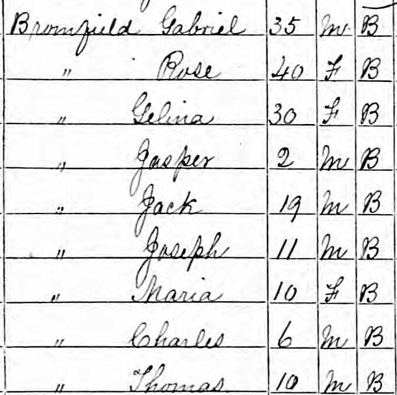 Bromfield Gabriel 35 M. B
" Rose 40 F B
" Gelina 30 F B
" Jasper 2 M B
" Jack 19 M B
" Joseph 11 M B
" Maria 10 F B
" Charles 6 M B
" Thomas 10 M B